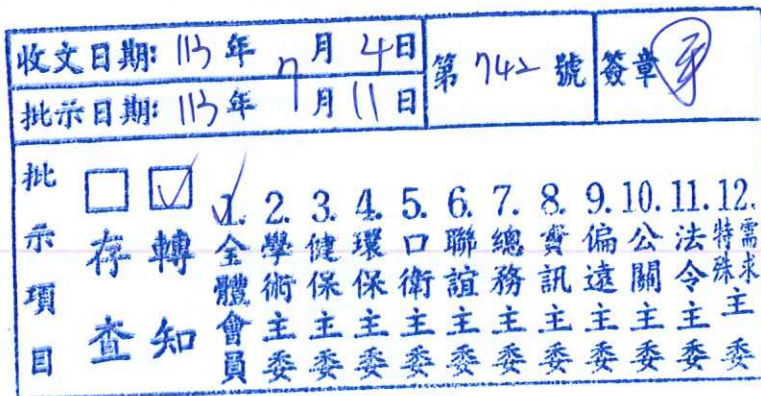 收文日期: 113年7月4日
批示日期: 113年7月11日
第742號
簽章
批示項目
□存查
☑轉知
1.全體會員
2.學術主委
3.健保主委
4.環保主委
5.口衛主委
6.聯誼主委
7.總務主委
8.資訊主委
9.偏遠主委
10.公關主委
11.法令主委
12.特殊需求主委